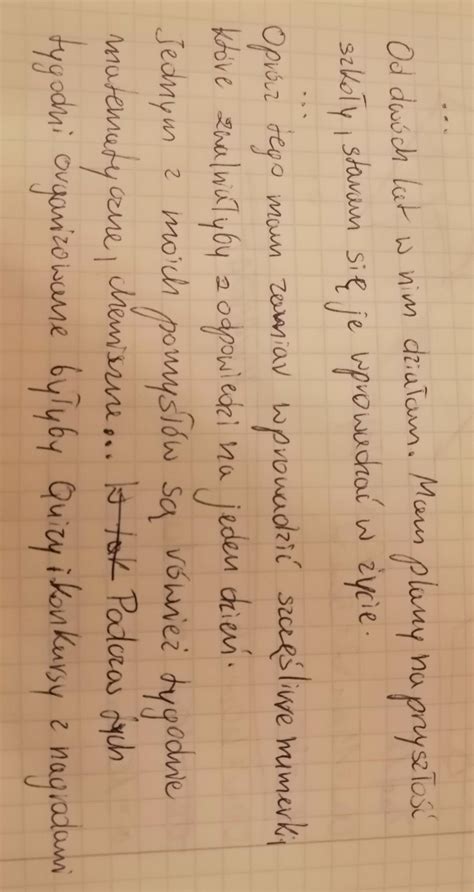 ...
Od dwóch lat w nim działam. Mam plany na przyszłość
szkoły, staram się je wprowadzać w życie.
...
Oprócz tego mam zamiar wprowadzić szczęśliwe numerki,
które zwalniałyby z odpowiedzi na jeden dzień.
Jednym z moich pomysłów są również tygodnie
matematyczne, chemiczne... Podczas tych
tygodni organizowane byłyby Quizy i konkursy z nagrodami